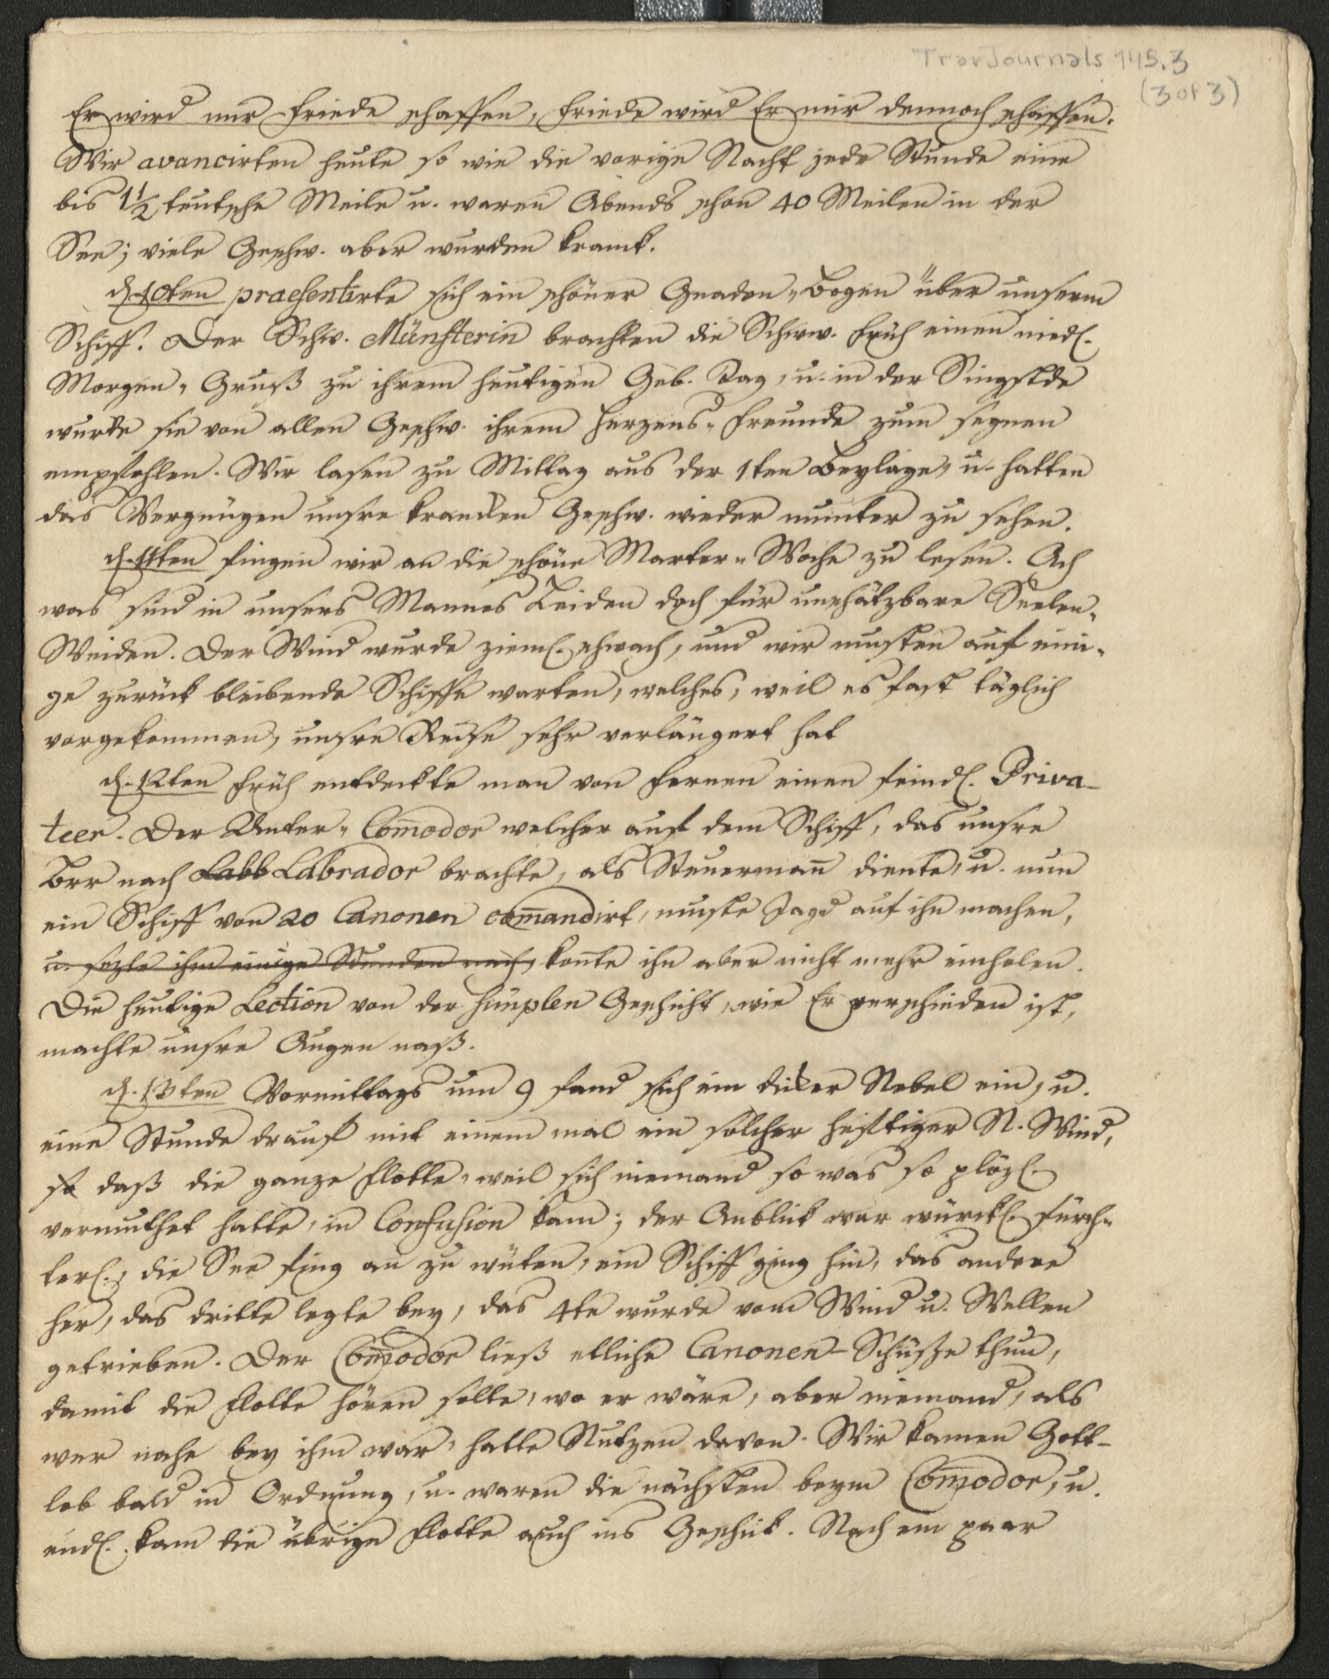 TravJournals 145.3
(3 of 3)
Er wird mir Friede schaffen, Friede wird Er mir dennoch schaffen.
Wir avancirten heute so wie die vorige Nacht jede Stunde eine
bis 1½ teutsche Meile u. waren Abends schon 40 Meilen in der
See; viele Geschw. aber wurden kranck.
d. 10ten praesentirte sich ein schöner Gnaden-Bogen über unserm
Schiff. Der Schw. Münsterin brachten die Schww. früh einen niedl.
Morgen-Gruß zu ihrem heutigen Geb. Tag, u. in der Singstde
wurde sie von allen Geschw. ihrem Herzens-Freunde zum segnen
empfohlen. Wir lasen zu Mittag aus der 1ten Beylage, u. hatten
das Vergnügen unsre krancken Geschw. wieder munter zu sehen.
d. 11ten fingen wir an die schöne Marter-Woche zu lesen. Ach
was sind in unsers Mannes Leiden doch für unschätzbare Seelen-
Weiden. Der Wind wurde zieml. schwach, und wir musten auf eini-
ge zurück bleibende Schiffe warten, welches, weil es fast täglich
vorgekommen, unsre Reise sehr verlängert hat
d. 12ten früh entdeckte man von Fernen einen feindl. Priva-
teer. Der Unter-Com̅odor welcher auf dem Schiff, das unsre
Brr nach Labb Labrador brachte, als Steuerman̅ diente, u. nun
ein Schiff von 20 Canonen com̅andirt, muste Jagd auf ihn machen,
u. sezte ihm einige Stunden nach, kon̅te ihn aber nicht mehr einholen.
Die heutige Lection von der simplen Geschicht, wie Er verschieden ist,
machte unsre Augen naß.
d. 13ten Vormittags um 9 fand sich ein dicker Nebel ein, u.
eine Stunde drauf mit einem mal ein solcher heftiger N. Wind,
so daß die ganze Flotte, weil sich niemand so was so plözl.
vermuthet hatte, in Confusion kam; der Anblick war würckl. fürch-
terl., die See fing an zu wüten, ein Schiff ging hin, das andere
her, das dritte legte bey, das 4te wurde vom Wind u. Wellen
getrieben. Der Com̅odor ließ etliche Canonen-Schüße thun,
damit die Flotte hören solte, wo er wäre, aber niemand, als
wer nahe bey ihm war, hatte Nutzen davon. Wir kamen Gott-
lob bald in Ordnung, u. waren die nächsten beym Com̅odor, u.
endl. kam die übrige Flotte auch ins Geschick. Nach ein paar